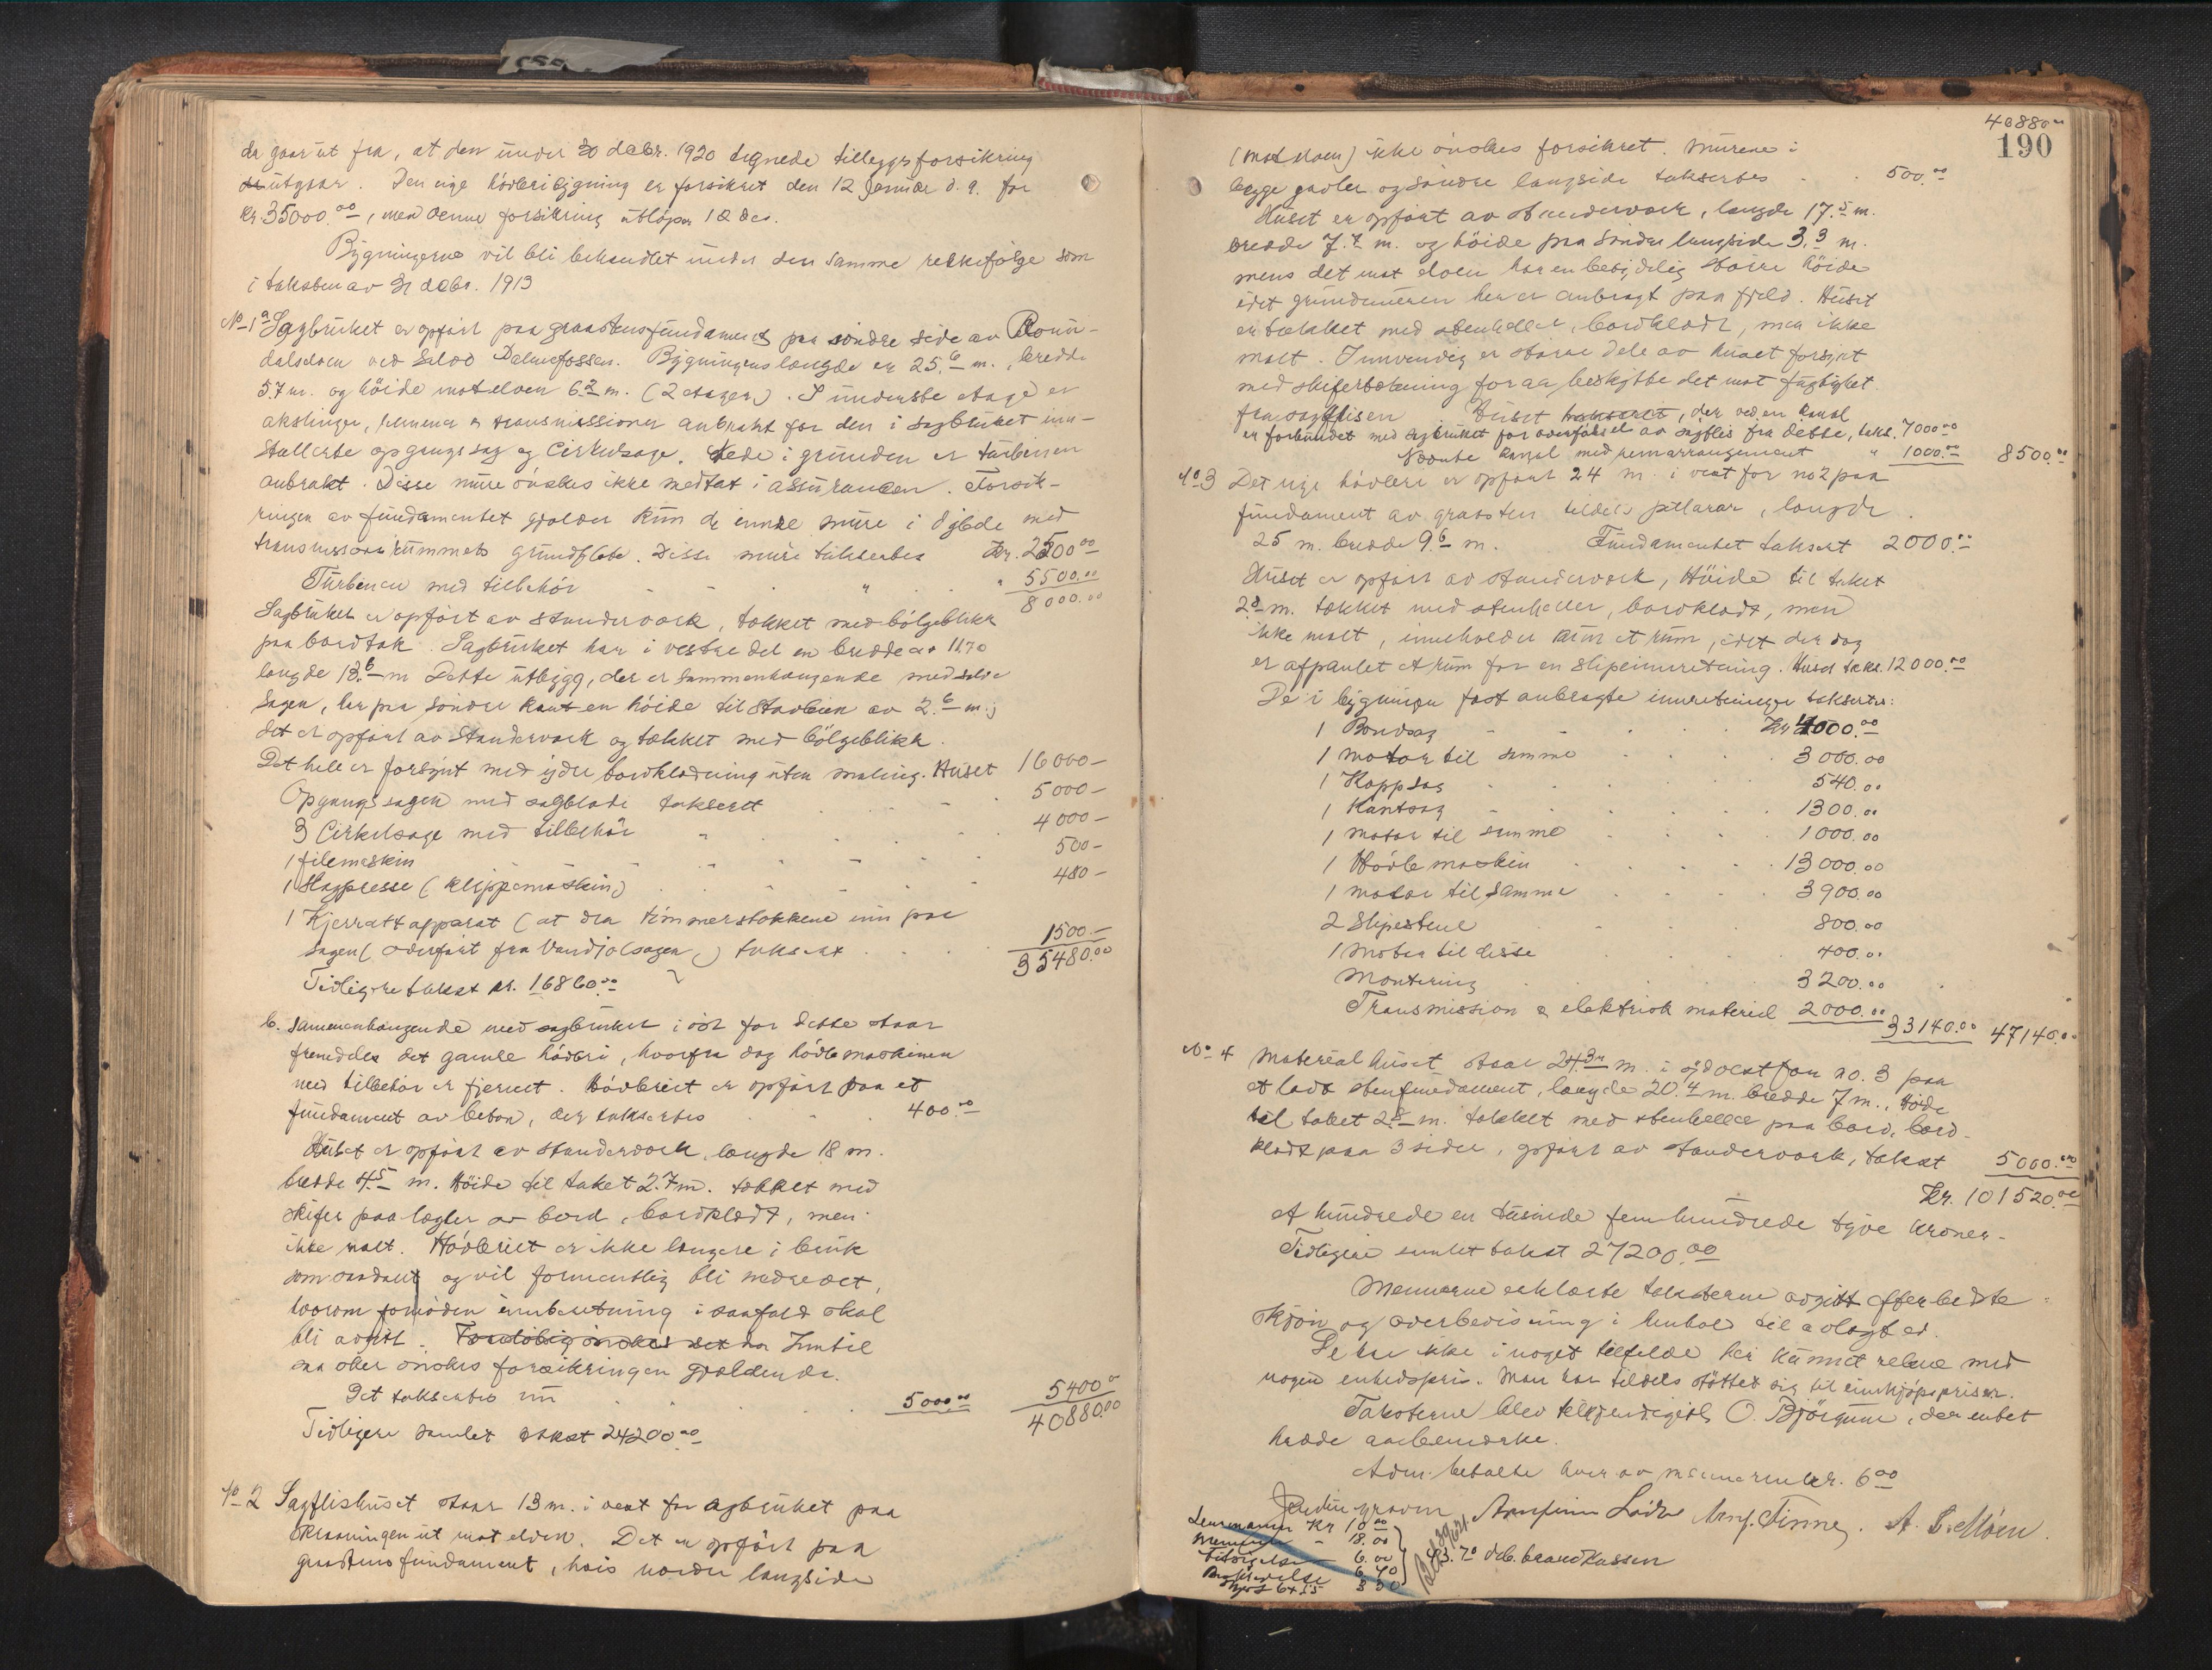 da gaar ut fra, at den under 30 decbr. 1920 tegnede tilleggsforsikring
utgaar. Den nye høvleribygning er forsikret den 12 Januar d. a. for
kr. 35000.00, men denne forsikring utløper 12 des.
Bygningerne vil bli behandlet under den samme rekkefølge som
i taksten av 31 decbr. 1913
No 1 a Sagbruket er opført paa graastensfundament paa søndre side av Roun-
dalselven ved Palmefossen. Bygningens længde er 25.6 m., bredde
5.7 m. og høide mot elven 6.2 m. (2 etager). I underste etage er
akslinger, remmer & transmissioner anbrakt for den i sagbruket inn-
stallerte opgangssag og Cirkelsage. Nede i grunden er turbinen
anbrakt. Disse mure ønskes ikke medtat i assurancen. Forsik-
ringen av fundamentet gjælder kun de indre mure i dybde med
transmissionsrummets grundflate. Disse mure takseres Kr. 2500.00
Turbinen med tilbehør " " 5500.00
8000.00
Sagbruket er opført av standerverk, tækket med bølgeblikk
paa bordtak. Sagbruket har i vestre del en bredde av 11.70
længde 13.6 m Dette utbygg, der er sammenhængende med selve
sagen, har paa søndre kant en høide til stavlein av 2.6 m.;
det er opført av standerverk og tækket med bølgeblikk.
Det hele er forsynt med ydre bordklædning uten maling. Huset 16000 –
Opgangssagen med sagblade taksert 5000 –
3 Cirkelsage med tilbehør " 4000 –
1 filemaskin 500 –
1 Hagpresse (klippemaskin) 480 –
1 Kjerrattapparat (at dra tømmerstokkene inn paa
sagen (overført fra Vandjolsagen) taksert 1500 –
35480.00
Tidligere takst kr. 16860.00
b. Sammenhængende med sagbruket i øst for dette staar
fremdeles det gamle høvleri, hvorfra dog høvlemaskinen
med tilbehør er fjernet. Høvleriet er opført paa et
fundament av beton, der takseres 400.00
Huset er opført av standerverk, længde 18 m.
bredde 4.5 m. Høide til taket 2.7 m. tækket med
skifer paa lægter av bord, bordklædt, men
ikke malt. Høvleriet er ikke længere i bruk
som saadant og vil formentlig bli nedrevet,
hvorom fornøden innberetning i saafald skal
bli avgitt. Foreløbig ønskes det Inntil
saa sker ønskes forsikringen gjældende.
Det takseres nu 5000.00 5400.00
40880.00
Tidligere samlet takst 24200.00
No 2 Sagflishuset staar 13 m. i vest for sagbruket paa
skraaningen ut mot elven. Det er opført paa
graastens fundament, hvis nordre langside
40880.00
190
(mot elven) ikke ønskes forsikret. Murene i
begge gavler og søndre langside takseres 500.00
Huset er opført av standerverk, længde 17.5 m.
bredde 7.2 m. og høide paa søndre langside 3.3 m.
mens det mot elven har en betydelig større høide
idet grundmuren her er anbragt paa fjeld. Huset
er tækket med stenheller, bordklædt, men ikke
malt. Innvendig er større dele av huset forsynt
med skifertækning for aa beskytte det mot fugtighet
fra sagflisen Huset taksert, der ved en kanal
er forbundet med sagbruket for overførsel av sagflis fra dette, taks. 7000.00
Nævnte kanal med remarrangement " 1000.00 8500.00
No 3 Det nye høvleri er opført 24 m. i vest for no 2 paa
fundament av graasten tildels pillarer, længde
25 m. bredde 9.6 m. Fundamentet taksert 2000.00
Huset er opført av standerverk, Høide til taket
2.8 m. tækket med stenheller, bordklædt, men
ikke malt, inneholder kun et rum, idet der dog
er afpanlet et rum for en slipeinnretning. Huset taks. 12000.00
De i bygningen fast anbragte innretninger takseres:
1 Bandsag Kr 4000.00
1 motor til samme 3000.00
1 Kappsag 540.00
1 Kantsag 1300.00
1 motor til samme 1000.00
1 Høvlemaskin 13000.00
1 motor til samme 3900.00
2 Slipestene 800.00
1 motor til disse 400.00
Montering 3200.00
Transmission & elektrisk materiel 2000.00 33140.00 47140.00
No 4 Materialhuset staar 24.3 m. i sydvest for no. 3 paa
et lavt stenfundament, længde 20.4 m. bredde 7 m., Høide
til taket 2.8 m. tækket med stenheller paa bord, bord-
klædt paa 3 sider, opført av standerverk, takst 5000.00
Kr. 101520.00
Et hundrede en tusinde femhundrede tyve kroner.
Tidligere samlet takst 27200.00
Mennerne erklærte taksterne avgitt efter bedste
skjøn og overbevisning i henhold til avlagt ed.
De har ikke i noget tilfelde her kunnet regne med
nogen enhedspris. Man har tildels støttet sig til innkjøpspriser.
Taksterne blev tilkjendegitt O. Bjørgum, der intet
hadde aa bemerke.
Adm. betalte hver av mennerne kr. 6.00
Arnfinn Lødve Arng. Finne. A. L. Møen.
Lensmannen Kr 10.00
Mennene " 18.00
6.00
Avskrivelse 6.40
43.70 deb. brandkassen